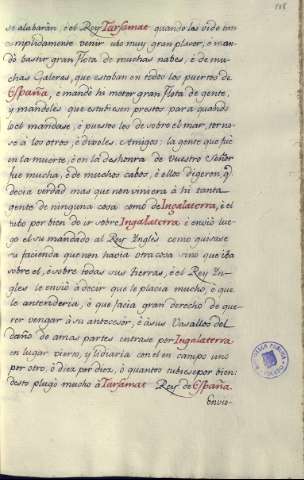 118
se alabarân; è el Rey Tarsamae quando las vide tan
complidamente venir ubo muy gran placer, è man-
dò bastir gran flota de muchas nabes, è de mu-
chas Galeras, que estaban en todos los puertos de
España, è mandò hi meter gran flota de gente,
y mandoles que estubiesen prestos para quando
los el mandase, è puestos los de sobre el mar, torno-
se à los otros, è dixoles. Amigos: la gente que fuè
en la muerte, è en la deshonra de Vuestro Señor
fue mucha, è de muchos cabos, è ellos digeron, q.
decia verdad mas que non viniera à hi tanta
gente de ninguna cosa como de Ingalaterra, è el
tubo por bien de ir sobre Ingalaterra è enviò lue-
go el su mandado al Rey Inglès como guisase
su facienda que non havia otra cosa sino que iba
sobre el, è sobre todas sus tierras, è el Rey In-
gles le enviò à decir que le placia mucho, è que
lo atenderia, è que facia gran derecho de que-
rer vengar à su antecesor, è à sus Vasallos del
daño de amas partes entrase por Ingalaterra
en lugar yermo, y lidiaria con el en campo uno
por otro, ò diez por diez, ò quantos tubiese por bien:
desto plugò mucho à Tarsamae Rey de España.
Envio-